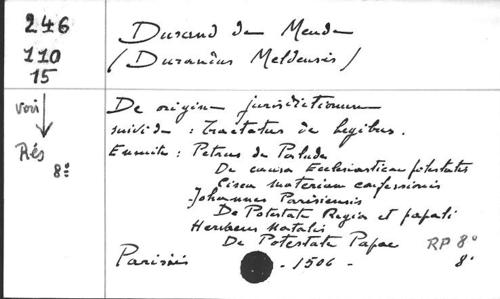 246
110
15
voir
Rés
8º
Durand de Mende
(Duranius Meldensis)
De origine jurisdictionum
suivi de : Tractatus de legibus.
Ensuite : Petrus de Palude
De causa Ecclesiasticae potestatis
Circa materiam confessionis
Johannes Parisiensis
De Potestate Regia et papali
Herveus Natalis
De Potestate Papae RP 8º
Parisiis - 1506 - 8º